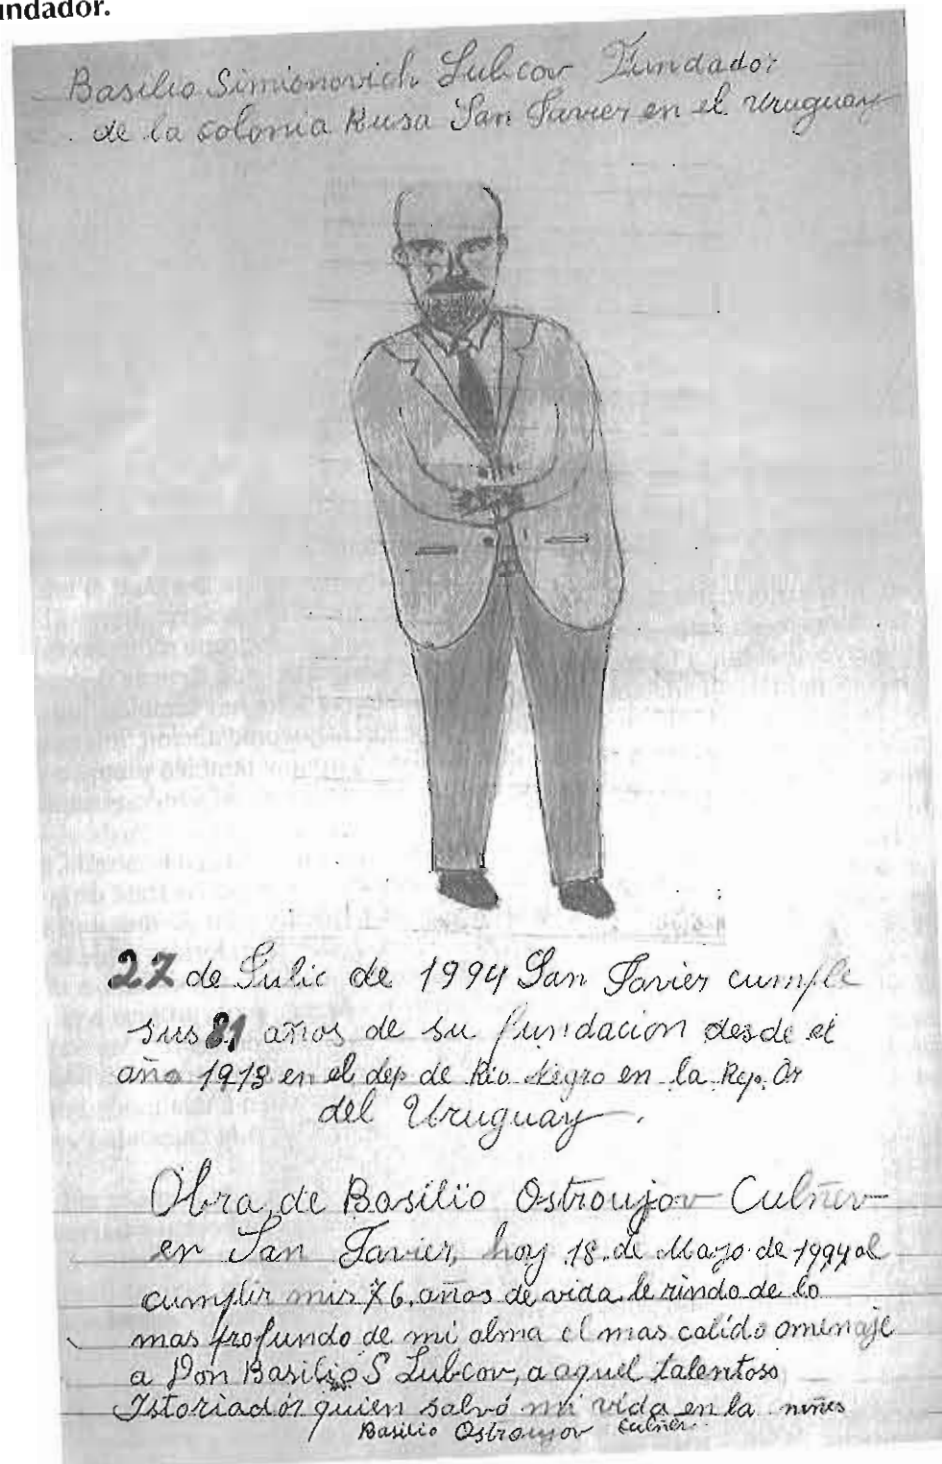 undador.
Basilio Simionovich Lubcov Fundador
de la colonia Rusa San Javier en el Uruguay
27 de Julio de 1994 San Javier cumple
sus 81 años de su fundacion desde el
año 1913 en el dep de Rio Negro en la Rep. Or
del Uruguay.
Obra de Basilio Ostroujov Culñev
en San Javier, hoy 18 de Mayo de 1994 al
cumplir mis 76 años de vida le rindo de lo
mas profundo de mi alma el mas calido omenaje
a Don Basilio S Lubcov, a aquel talentoso
Istoriadór quien salvó mi vida en la niñes
Basilio Ostroujov Culñev